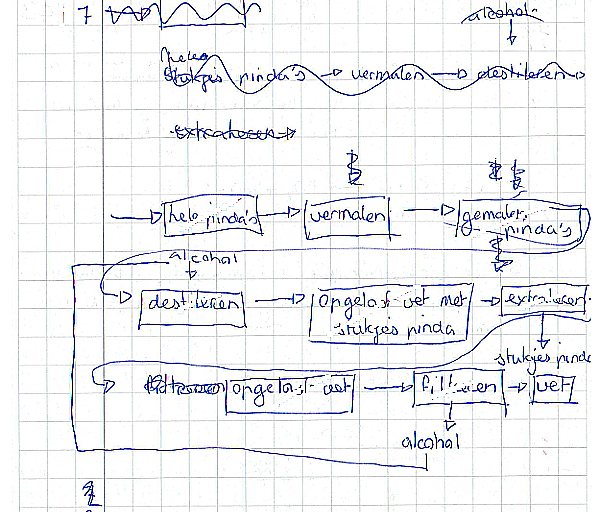 7
alcohol
hele
stukjes pinda's → vermalen → destilleren →
extraheren →
→ hele pinda's → vermalen → gemalen pinda's
alcohol
destilleren → opgelost vet met stukjes pinda → extraheren
stukjes pinda
filtreren opgelost vet → filtreren → vet
alcohol